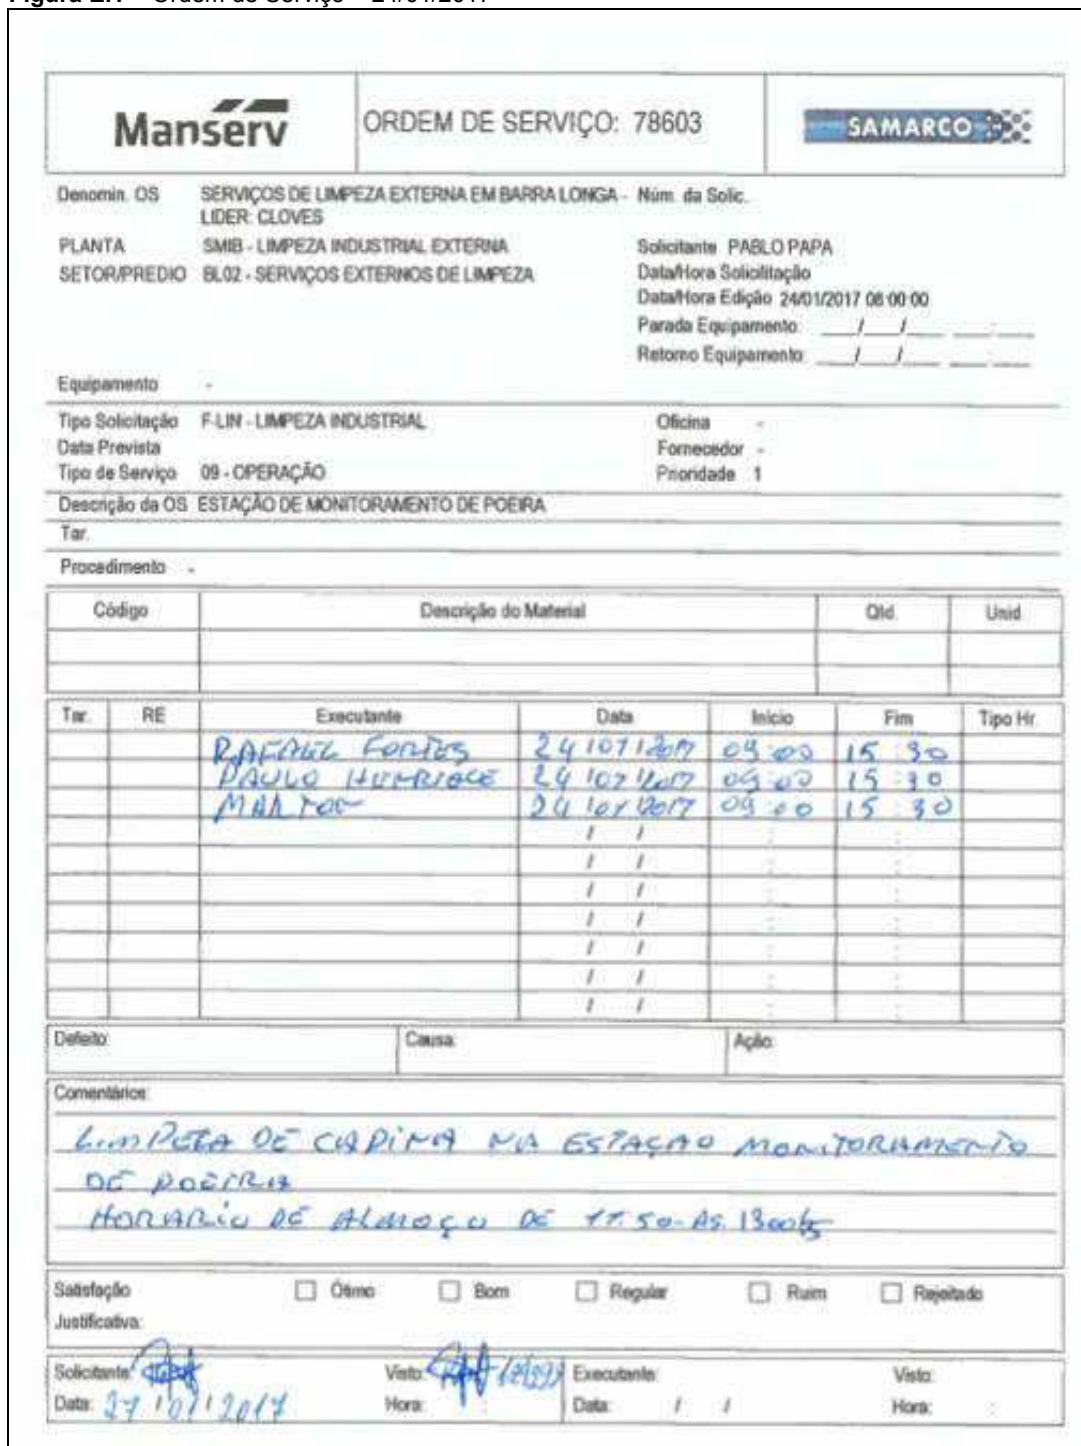 Figura E.1 - Ordem de Serviço - 24/01/2017
Manserv
ORDEM DE SERVIÇO: 78603
SAMARCO
Denomin. OS SERVIÇOS DE LIMPEZA EXTERNA EM BARRA LONGA - Núm. da Solic.
LIDER: CLOVES
PLANTA SMIB - LIMPEZA INDUSTRIAL EXTERNA Solicitante PABLO PAPA
SETOR/PREDIO BL02 - SERVIÇOS EXTERNOS DE LIMPEZA Data/Hora Solicilitação
Data/Hora Edição 24/01/2017 08:00:00
Parada Equipamento: ___/___/___ ___:___
Retorno Equipamento: ___/___/___ ___:___
Equipamento -
Tipo Solicitação F-LIN - LIMPEZA INDUSTRIAL Oficina -
Data Prevista Fornecedor -
Tipo de Serviço 09 - OPERAÇÃO Prioridade 1
Descrição da OS ESTAÇÃO DE MONITORAMENTO DE POEIRA
Tar.
Procedimento -
Código Descrição do Material Qtd. Unid.
Tar. RE Executante Data Início Fim Tipo Hr.
RAFAEL FORTES 24/01/2017 09:00 15:30
PAULO HENRIQUE 24/01/2017 09:00 15:30
MARTON 24/01/2017 09:00 15:30
Defeito: Causa: Ação:
Comentários:
LIMPEZA DE CAPINA NA ESTAÇÃO MONITORAMENTO
DE POEIRA
HORARIO DE ALMOÇO DE 11:50-AS. 1300hs
Satisfação Ótimo Bom Regular Ruim Rejeitado
Justificativa:
Solicitante: Visto: Executante: Visto:
Data: 27/01/2017 Hora: : Data: / / Hora: :